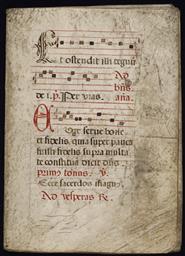 Et ostendit illi regnū
Ad
bn̄s.
de i. p. Per vias. an̄a.
Euge serve bone
et fidelis. quia super pauca
fuisti fidelis supra multa
te constituā dicit dn̄s.
primi tonus. v.
Ecce sacerdos magn'.
Ad vesperas R.